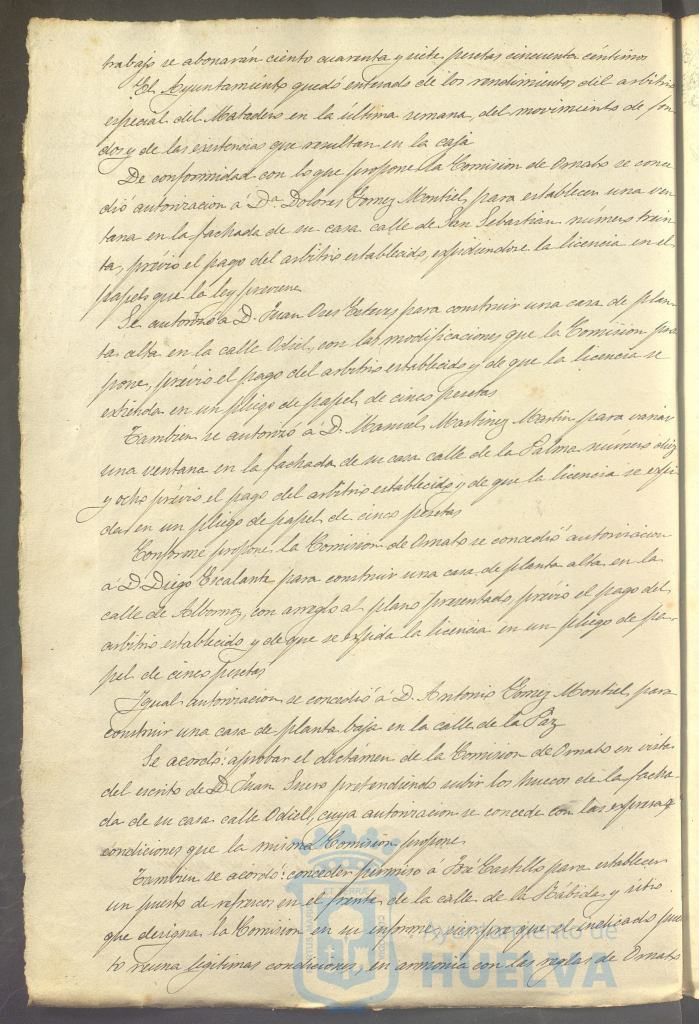 trabajo se abonarán ciento cuarenta y siete pesetas cincuenta céntimos
El Ayuntamiento quedó enterado de los rendimientos del arbitrio
especial del Matadero en la última semana, del movimiento de fon-
dos y de las existencias que resultan en la caja
De conformidad con lo que propone la Comision de Ornato se conce
dió autorizacion á Dª Dolores Gomez Montiel, para establecer una ven
tana en la fachada de su casa calle de San Sebastian número trein
ta, prévio el pago del arbitrio establecido, expidiendose la licencia en el
papel que la ley previene
Se autorizó á D. Juan Esteves para construir una casa de plan-
ta alta en la calle Odiel, con las modificaciones que la Comision pro
pone, prévio el pago del arbitrio establecido y de que la licencia se
extienda en un pliego de papel de cinco pesetas
Tambien se autorizó á D. Manuel Martinez Martin para variar
una ventana en la fachada de su casa calle de la Palma número diez
y ocho prévio el pago del arbitrio establecido y de que la licencia se expi
da en un pliego de papel de cinco pesetas
Conforme propone la Comision de Ornato se concedió autorizacion
á D. Diego Escalante para construir una casa de planta alta en la
calle de Albornoz, con arreglo al plano presentado, prévio el pago del
arbitrio establecido y de que se expida la licencia en un pliego de pa-
pel de cinco pesetas
Igual autorizacion se concedió á D. Antonio Gomez Montiel, para
construir una casa de planta baja en la calle de la Paz
Se acordó: aprobar el dictámen de la Comision de Ornato en vista
del escrito de D. Juan Suero pretendiendo subir los huecos de la facha-
da de su casa calle Odiel, cuya autorizacion se concede con las expresas
condiciones que la misma Comision propone
Tambien se acordó: conceder permiso á José Castillo para establecer
un puesto de refrescos en el frente de la calle de la Rábida y sitio
que designa la Comision en su informe, siempre que el indicado pues
to reuna legitimas condiciones, en armonía con las reglas de Ornato
Ayuntamiento de
HUELVA